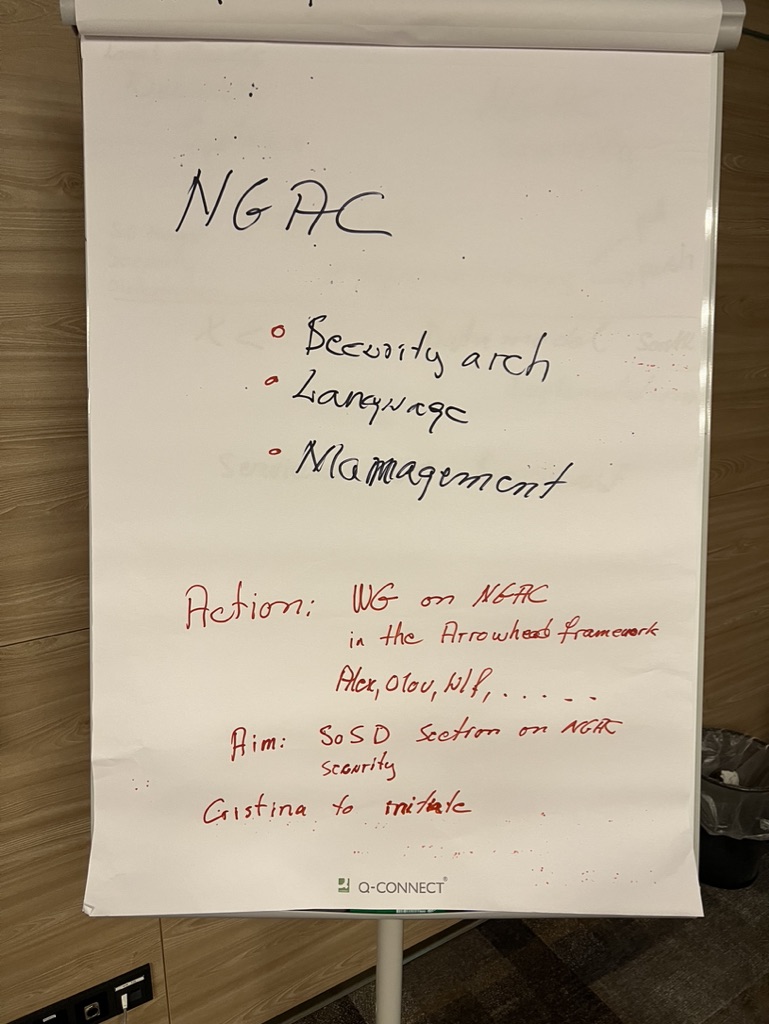 NGAC
Security arch
Language
Mamagement
Action: WG on NGAC
in the Arrowhead framework
Alex, Olov, Ulf, . . . . .
Aim: SoSD section on NGAC
security
Cristina to initiate
Q-CONNECT®